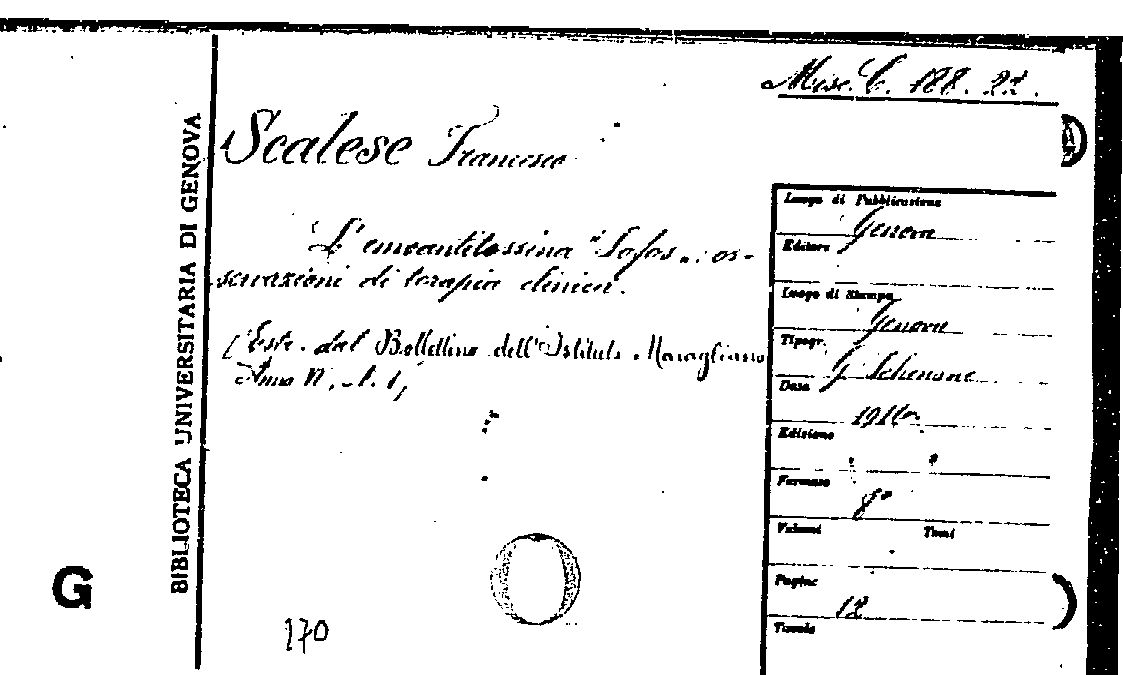 Misc. C. 188. 22.
Scalese Francesco
L'emoantitossina "Sofos": os-
servazioni di terapia clinica.
(Estr. dal Bollettino dell'Istituto Maragliano
Anno II, N. 1,
BIBLIOTECA UNIVERSITARIA DI GENOVA
G
170
Luogo di Pubblicazione
Genova
Editore
Luogo di Stampa
Genova
Tipogr.
G. Schenone
Data
Edizione
Formato
8°
Volumi Tomi
Pagine
12
Tavole